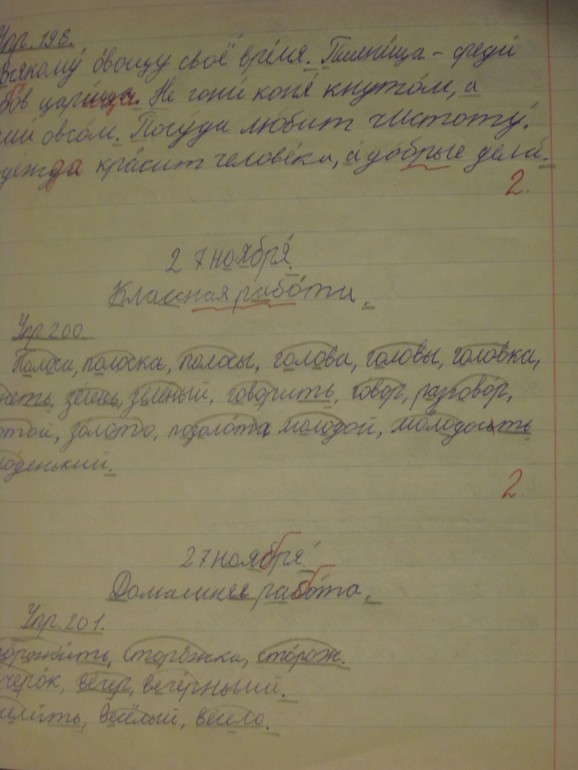 Упр. 198.
всякому овощу своё время. Пшеница - среди
бов царица. Не гони коня кнутом, а
ми овсом. Посуда любит чистоту.
дежда красит человека, а добрые дела.
2.
27 ноября.
Классная работа.
Упр 200.
Полоса, полоска, полосы, голова, головы, головка,
зелень, зелёный, говорить, говор, разговор,
отой, золото, позолота молодой, молодость
оденький.
2
27 ноября.
Домашнее работа.
Упр. 201.
орожить, сторожка, сторож.
черок, вечер, вечерный.
селить, весёлый, весело.